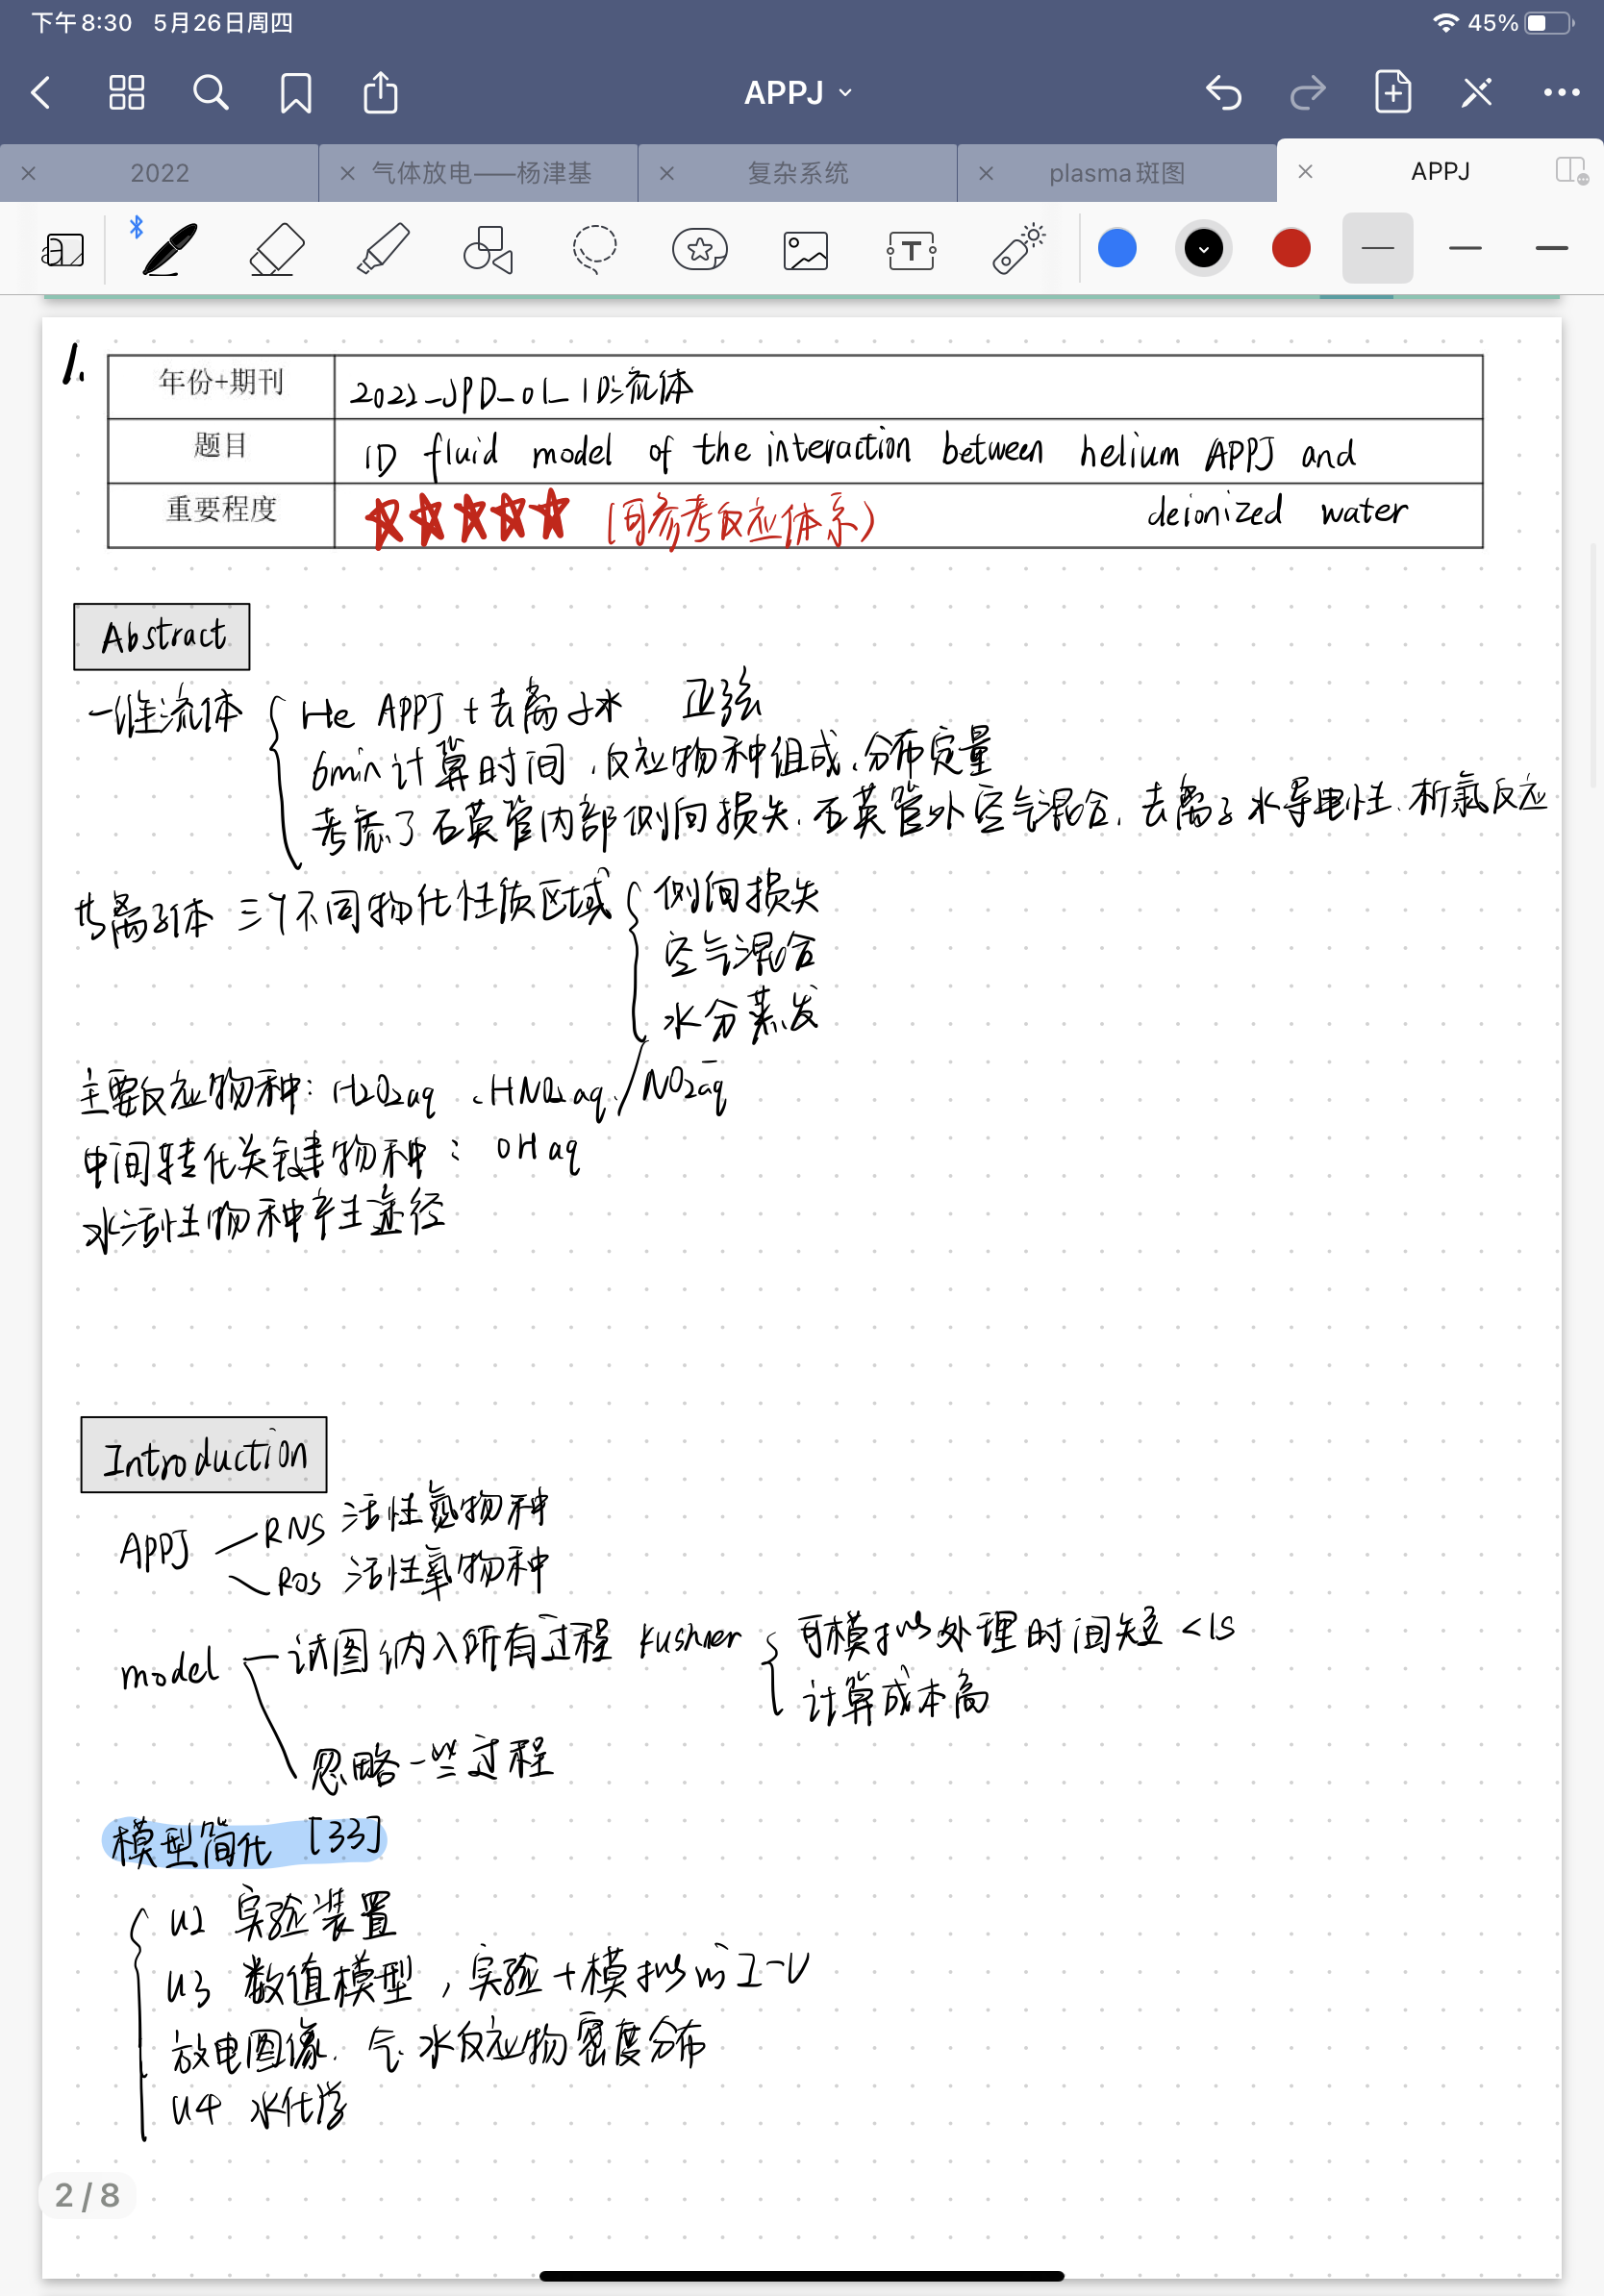 下午8:30 5月26日周四
45%
APPJ
2022
气体放电——杨津基
复杂系统
plasma斑图
APPJ
1.
年份+期刊 2022_JPD_01_1D流体
题目 1D fluid model of the interaction between helium APPJ and
deionized water
重要程度 (可参考反应体系)
Abstract
一维流体
He APPJ + 去离子水 正弦
6min计算时间、反应物种组成、分布定量
考虑了石英管内部侧向损失、石英管外空气混合、去离子水导电性、析氯反应
等离子体 三个不同物化性质区域
侧向损失
空气混合
水分蒸发
主要反应物种: H2O2aq、HNO2aq / NO2⁻aq
中间转化关键物种: OHaq
水活性物种产生途径
Introduction
APPJ
RNS 活性氮物种
ROS 活性氧物种
model
试图纳入所有过程 Kushner
可模拟处理时间短 <1s
计算成本高
忽略一些过程
模型简化 [33]
U2 实验装置
U3 数值模型, 实验+模拟的I-V
放电图像、气、水反应物密度分布
U4 水化学
2 / 8